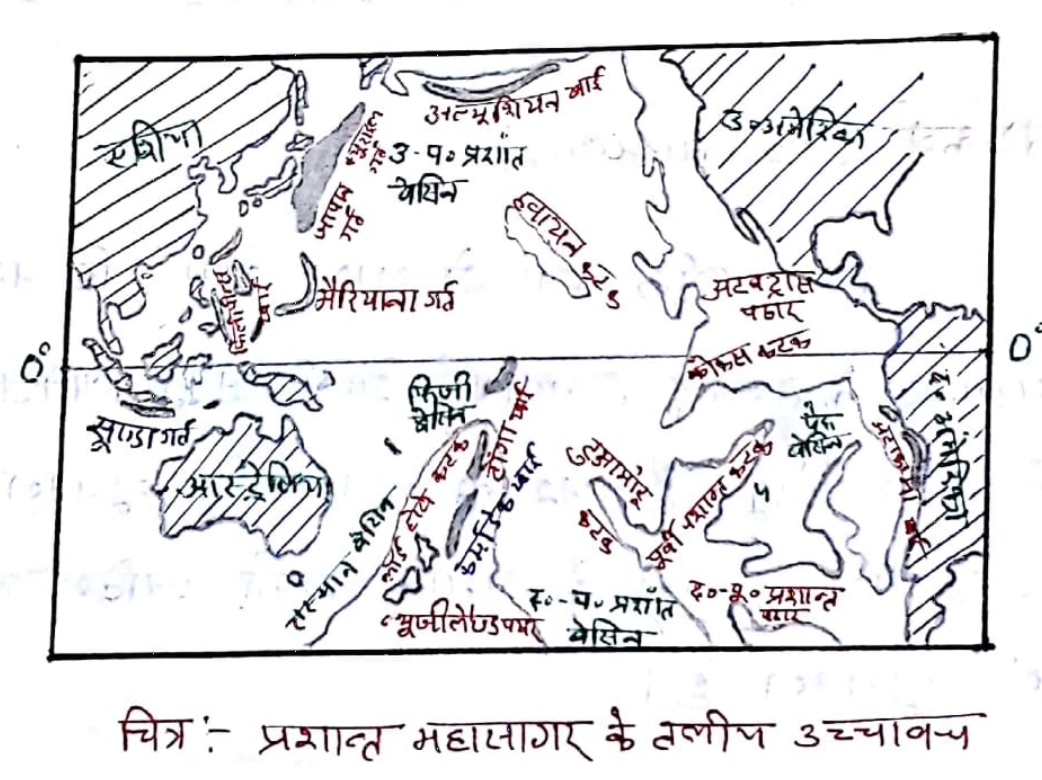 एशिया
अल्यूशियन खाई
उ० अमेरिका
क्यूराइल गर्त
जापान गर्त
उ-प० प्रशांत
बेसिन
हवायन कटक
फिलीपीन्स खाई
मैरियाना गर्त
अलबट्रास
पठार
कोकस कटक
0°
0°
सूण्डा गर्त
आस्ट्रेलिया
फिजी
बेसिन
टोंगा खाई
करमाडेक खाई
लार्ड होवे कटक
तस्मान बेसिन
न्यूजीलैण्ड पठार
टुआमोटू
कटक
पूर्वी प्रशान्त कटक
पेरू
बेसिन
अटाकामा खाई
द० अमेरिका
द०-प० प्रशांत
बेसिन
द०-पू० प्रशान्त
पठार
चित्र :- प्रशान्त महासागर के तलीय उच्चावच